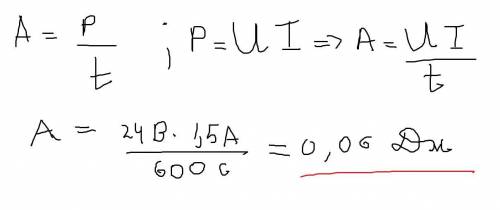 A = P/t ; P = U I => A = U I/t
A = 24 В · 1,5 А/600 с = 0,06 Дж